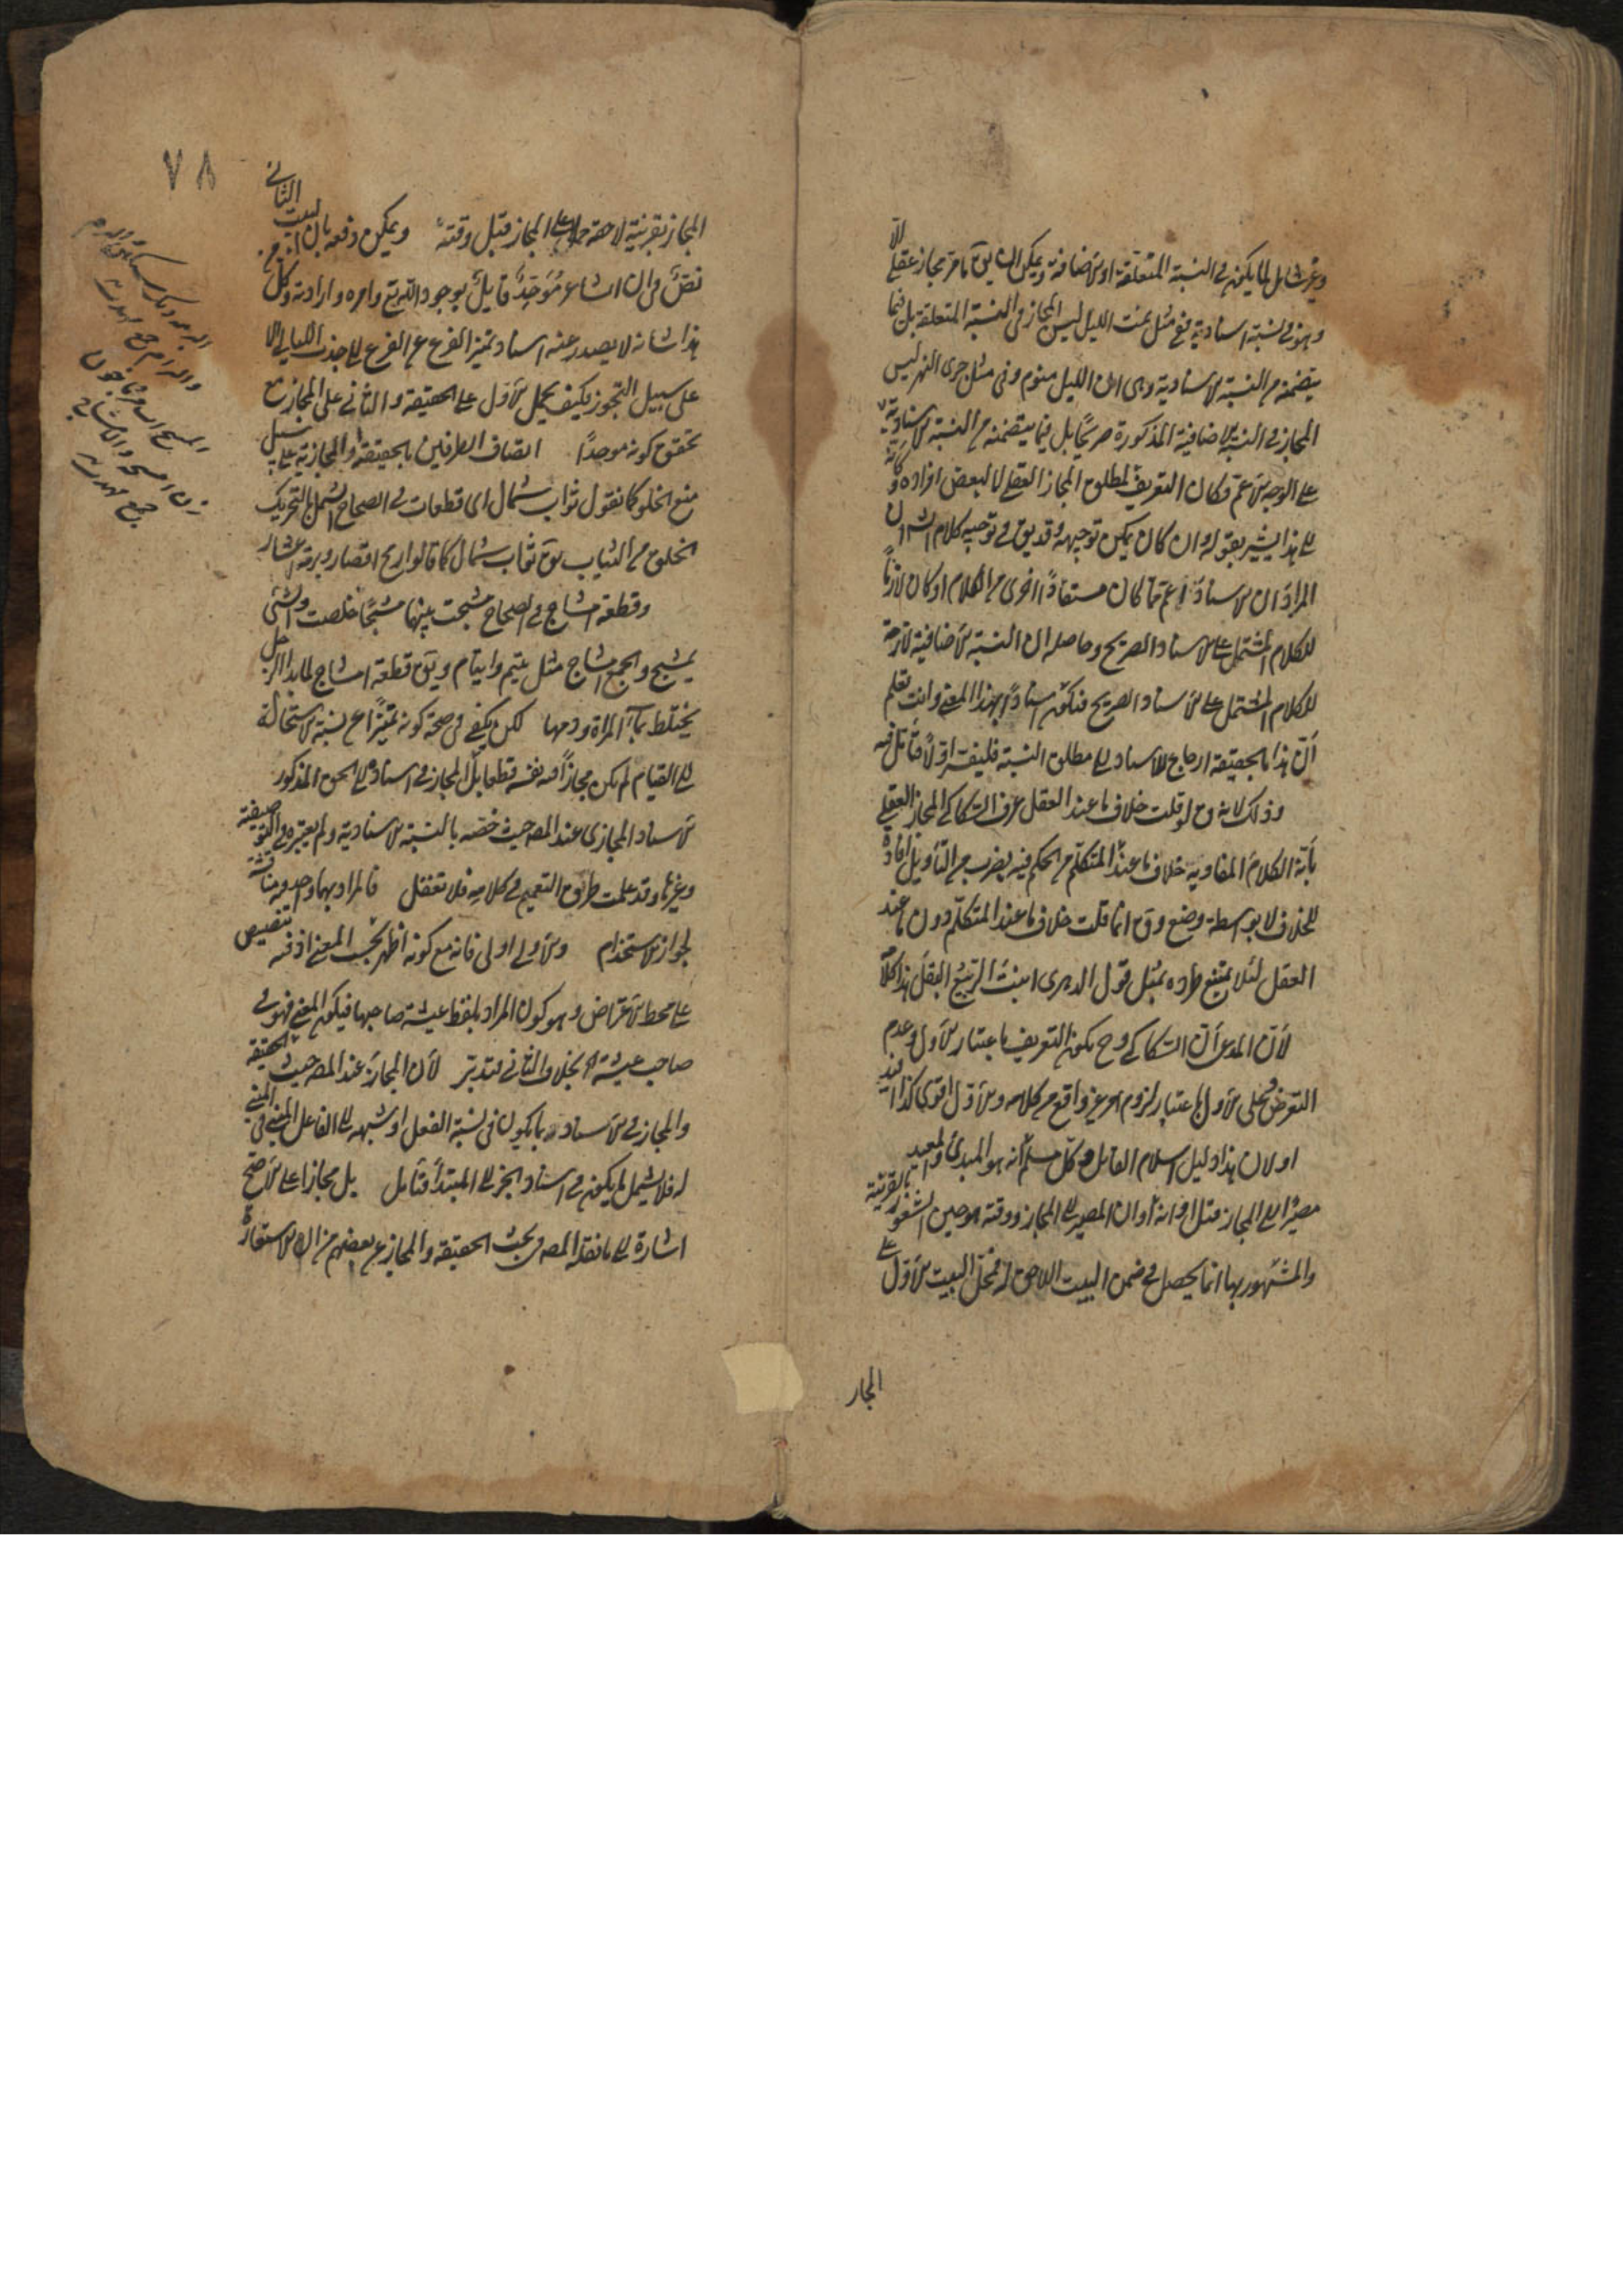 وغير شامل لما يكون في النسبة المتعلقة او الاضافة ويمكن ان يق ما مر مجاز عقلي الا
وهو في نسبة اسنادية ففي مثل نمت الليل ليس المجاز في النسبة المتعلقة بل فيما
يتضمنه من النسبة الاسنادية وهي ان الليل منوم وفي مثل جرى النهر ليس
المجاز في النسبة الاضافية المذكورة صريحا بل فيما يتضمنه من النسبة الاسنادية
على الوجه الاعم فكان التعريف لمطلق المجاز العقلي لا لبعض افراده وكانه
الى هذا يشير بقوله ان كان يمكن توجيهه وقد يق في توجيه كلام الش ان
المراد ان الاسناد اعم مما كان مستفادا اخرى من الكلام او كان لازما
للكلام المشتمل على الاسناد الصريح وحاصله ان النسبة الاضافية لازمة
للكلام المشتمل على الاسناد الصريح فتكون اسنادا بهذا المعنى وانت تعلم
ان هذا بالحقيقة ارجاع للاسناد الى مطلق النسبة فليفسر اولا فتأمل فيه
وذلك لانه ق لو قلت خلاف ما عند العقل عرف السكاكي المجاز العقلي
بانه الكلام المفاد به خلاف ما عند المتكلم من الحكم فيه بضرب من التأويل افادة
للخلاف لا بواسطة وضع وق انما قلت خلاف ما عند المتكلم دون ما عند
العقل لئلا يمتنع طرده بمثل قول الدهري انبت الربيع البقل هذا كلامه
لان المدعى ان السكاكي وح يكون التعريف باعتبار الاول وعدم
التعرض على الاول باعتبار لزوم امر غير واقع من كلامه والاول اقوى كذا افيد
او لان هذا دليل اسلام القائل وكل مسلم انه هو المبدئ والمعيد
مصيرا الى المجاز قبل اوانه اوان المصير الى المجاز ووقته هو حين الشعور بالقرينة
والمشهور بها انما يحصل في ضمن البيت اللاحق له فحمل البيت الاول على
المجاز
٧٨
المجاز بقرينة لاحقة حمل على المجاز قبل وقته ويمكن دفعه بان البيت الثاني
نص في ان الشاعر موحد قايل بوجود الله تع وامره وارادته وكل
هذا شانه لا يصدر عنه اسناد تميز القزع عن القزع الى جذب الليالي الا
على سبيل التجوز فكيف يحمل الاول على الحقيقة والثاني على المجاز مع
تحقق كونه موحدا اتصاف الطرفين بالحقيقة والمجازية على سبيل
منع الخلو كما نقول ثواب شمال اى قطعات في الصحاح الشمل بالتحريك
الخلق من الثياب يق ثواب شمال كما قالوا رمح اقصاد وبرمة اعشار
وقطعة امشاج في الصحاح مشجت بينهما مشجا خلصت والشئ
مشيج والجمع امشاج مثل يتيم وايتام ويق قطعة امشاج لماء الرجل
يختلط بماء المراة ودمها لكن يكفي في صحة كونه تميزا عن نسبة الاستحالة
الى القيام لم يكن مجازا في نفسه قطعا بل المجاز في اسناده الى الحق المذكور
الاسناد المجازي عند المص حيث خصه بالنسبة الاسنادية ولم يعتبره في التوصيفية
وغيرها وقد علمت طريق التعميم في كلامه فلا تغفل فالمراد بهما واحد ومناقشة
لجواز الاستخدام والاولى اولى فانه مع كونه اظهر بحسب المعنى اذ فيه تنصيص
على محط الاعتراض وهو كون المراد بلفظ عيشة صاحبها فيكون المعنى فهو في
صاحب عيشة بخلاف الثاني فتدبر لان المجاز عند المص حيث الحقيقة
والمجاز في الاسناد بما يكون في نسبة الفعل او شبهه الى الفاعل المبنى في المبنى
له فلا يشمل ما يكون في اسناد الخبر الى المبتدأ فتأمل بل مجازا على الاصح
اشارة الى ما نقله المص في بحث الحقيقة والمجاز عن بعضهم من ان الاستعارة